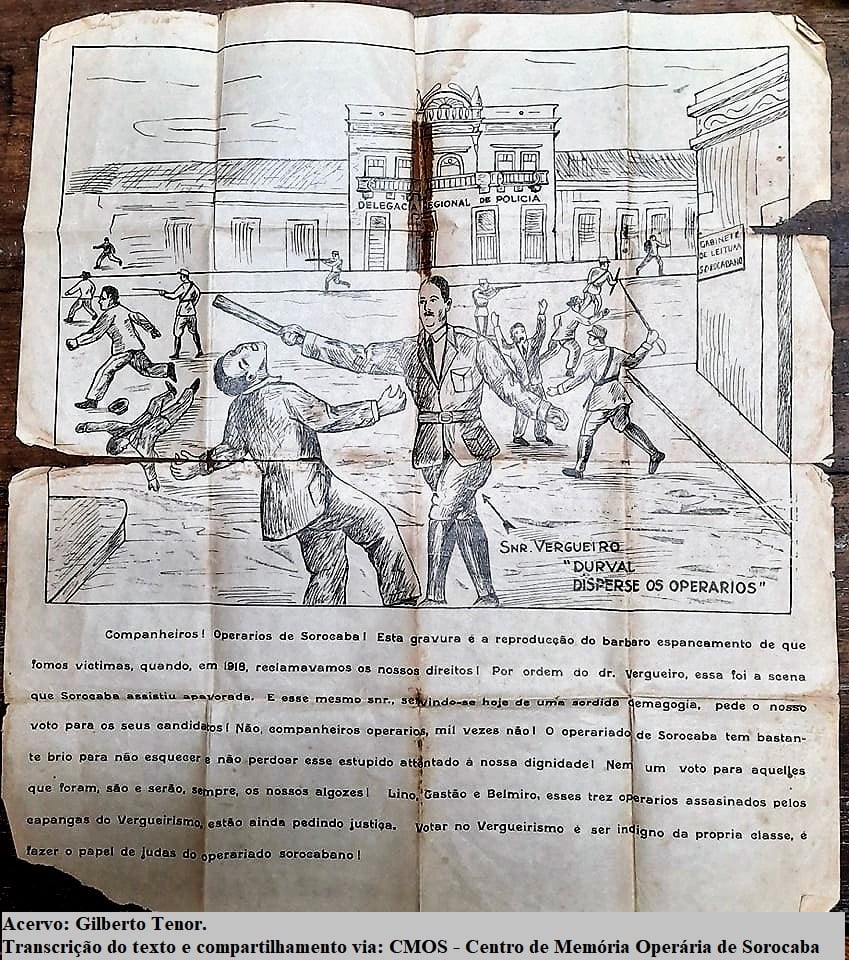 DELEGACIA REGIONAL DE POLICIA
GABINETE
DE LEITURA
SOROCABANO
SNR. VERGUEIRO
"DURVAL
DISPERSE OS OPERARIOS"
Companheiros! Operarios de Sorocaba! Esta gravura é a reproducção do barbaro espancamento de que
fomos victimas, quando, em 1918, reclamavamos os nossos direitos! Por ordem do dr. Vergueiro, essa foi a scena
que Sorocaba assistiu apavorada. E esse mesmo snr., servindo-se hoje de uma sordida demagogia, pede o nosso
voto para os seus candidatos! Não, companheiros operarios, mil vezes não! O operariado de Sorocaba tem bastan-
te brio para não esquecer e não perdoar esse estupido attentado á nossa dignidade! Nem um voto para aquelles
que foram, são e serão, sempre, os nossos algozes! Lino, Gastão e Belmiro, esses trez operarios assassinados pelos
capangas do Vergueirismo, estão ainda pedindo justiça. Votar no Vergueirismo é ser indigno da propria classe, é
fazer o papel de judas do operariado sorocabano!
Acervo: Gilberto Tenor.
Transcrição do texto e compartilhamento via: CMOS - Centro de Memória Operária de Sorocaba